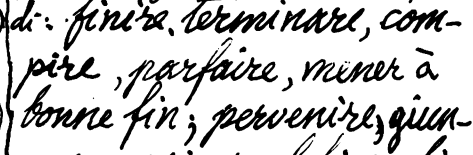 di: finire, terminare, com-
pire, parfaire, mener à
bonne fin; pervenire, giun-